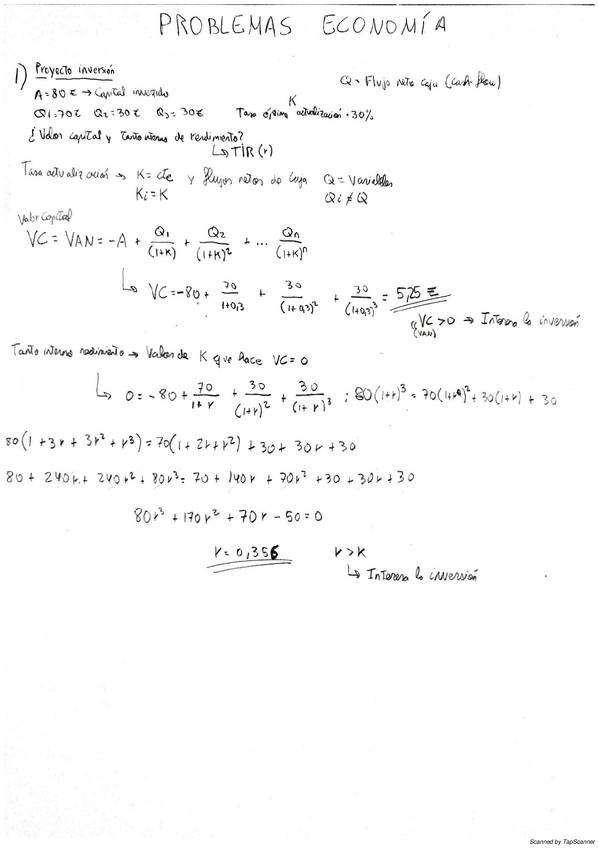 PROBLEMAS ECONOMÍA
1) Proyecto inversión
Q = Flujo neto caja (cash flow)
A = 80 € → Capital invertido
Q1 = 70 € Q2 = 30 € Q3 = 30 € Tasa óptima actualización = 30%
K
¿Valor capital y tanto interno de rendimiento?
↳ TIR (r)
Tasa actualización → K = cte y flujos netos de caja Q = Variables
Ki = K Qi ≠ Q
Valor Capital
VC = VAN = -A + Q1/(1+K) + Q2/(1+K)^2 + ... Qn/(1+K)^n
↳ VC = -80 + 70/1+0,3 + 30/(1+0,3)^2 + 30/(1+0,3)^3 = 5,25 €
VC > 0 → Interesa la inversión
(VAN)
Tanto interno rendimiento → Valor de K que hace VC = 0
↳ 0 = -80 + 70/1+r + 30/(1+r)^2 + 30/(1+r)^3 ; 80(1+r)^3 = 70(1+r)^2 + 30(1+r) + 30
80(1 + 3r + 3r² + r³) = 70(1 + 2r + r²) + 30 + 30r + 30
80 + 240r + 240r² + 80r³ = 70 + 140r + 70r² + 30 + 30r + 30
80r³ + 170r² + 70r - 50 = 0
r = 0,356 r > K
↳ Interesa la inversión
Scanned by TapScanner